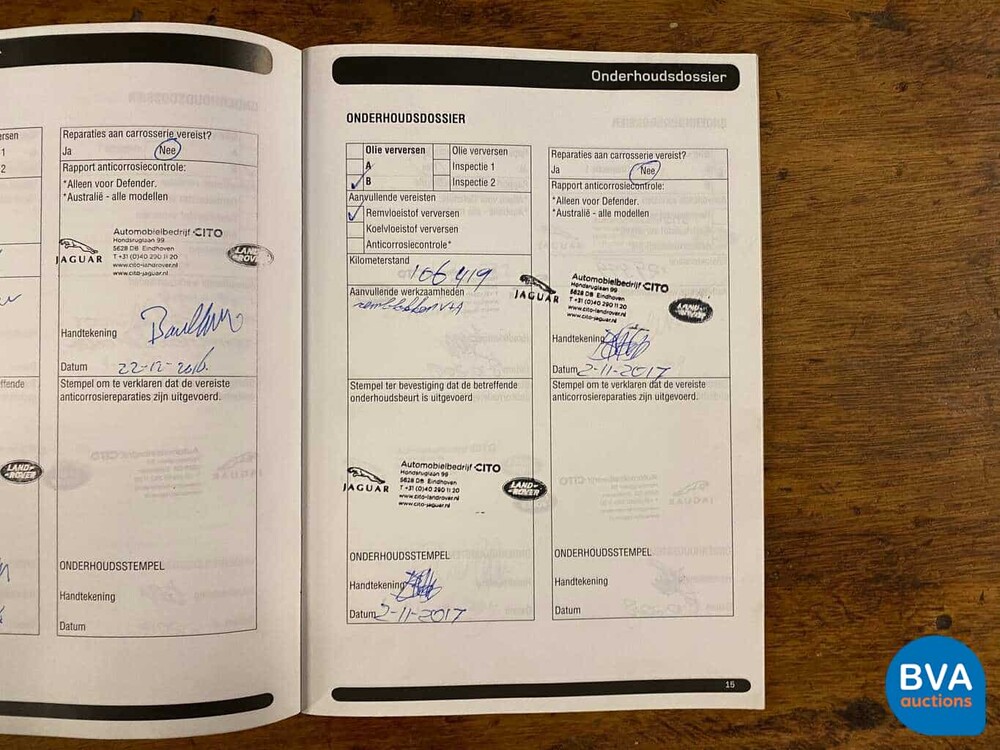 ersen
1
2
ffende
Reparaties aan carrosserie vereist?
Ja Nee
Rapport anticorrosiecontrole:
*Alleen voor Defender.
*Australië - alle modellen
JAGUAR
Automobielbedrijf CITO
Hondsruglaan 99
5628 DB Eindhoven
T +31 (0)40 290 11 20
www.cito-landrover.nl
www.cito-jaguar.nl
LAND ROVER
Handtekening
Datum 22-12-2016.
Stempel om te verklaren dat de vereiste
anticorrosiereparaties zijn uitgevoerd.
LAND ROVER
ONDERHOUDSSTEMPEL
Handtekening
Datum
Onderhoudsdossier
ONDERHOUDSDOSSIER
Olie verversen Olie verversen
A Inspectie 1
B Inspectie 2
Aanvullende vereisten
Remvloeistof verversen
Koelvloeistof verversen
Anticorrosiecontrole*
Kilometerstand
106419
Aanvullende werkzaamheden
remblokken V+A
Stempel ter bevestiging dat de betreffende
onderhoudsbeurt is uitgevoerd
JAGUAR
Automobielbedrijf CITO
Hondsruglaan 99
5628 DB Eindhoven
T +31 (0)40 290 11 20
www.cito-landrover.nl
www.cito-jaguar.nl
LAND ROVER
ONDERHOUDSSTEMPEL
Handtekening
Datum 2-11-2017
Reparaties aan carrosserie vereist?
Ja Nee
Rapport anticorrosiecontrole:
*Alleen voor Defender.
*Australië - alle modellen
JAGUAR
Automobielbedrijf CITO
Hondsruglaan 99
5628 DB Eindhoven
T +31 (0)40 290 11 20
www.cito-landrover.nl
www.cito-jaguar.nl
LAND ROVER
Handtekening
Datum 2-11-2017
Stempel om te verklaren dat de vereiste
anticorrosiereparaties zijn uitgevoerd.
ONDERHOUDSSTEMPEL
Handtekening
Datum
15
BVA
auctions